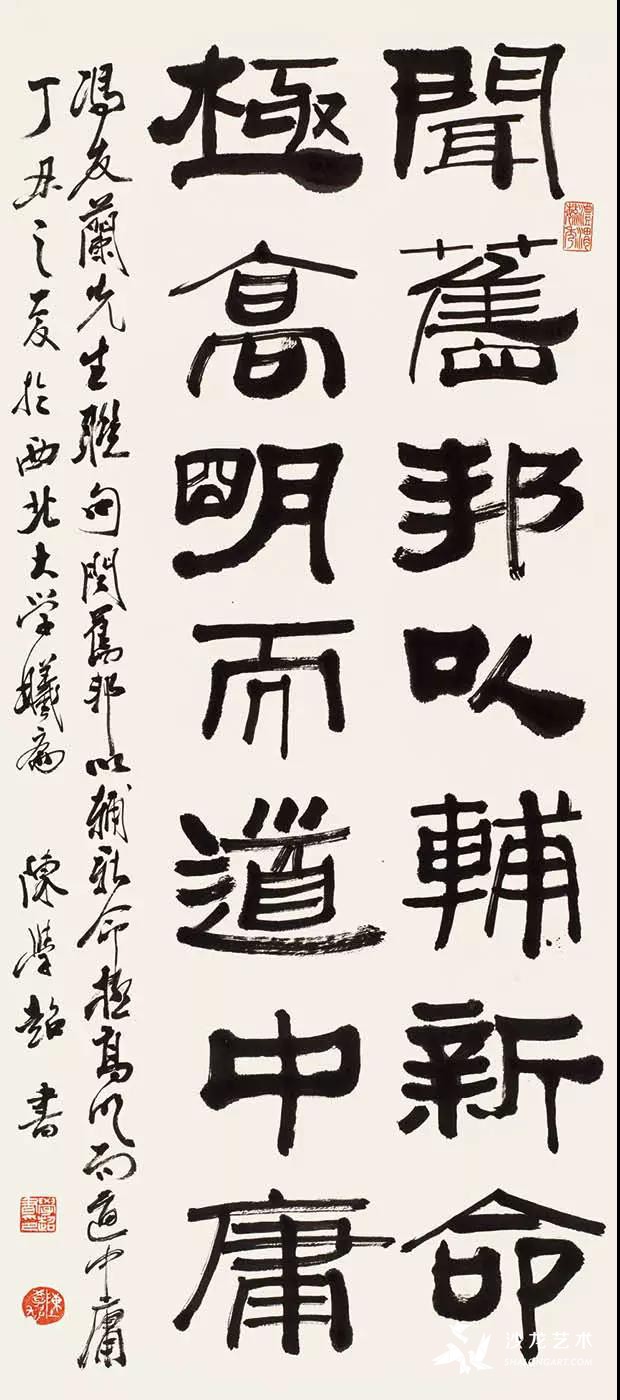 聞舊邦以輔新命
極高明而道中庸
馮友蘭先生聯句聞舊邦以輔新命極高明而道中庸
丁丑之夏於西北大学斋 陳學超書
沙龙艺术
SHALONGART.COM